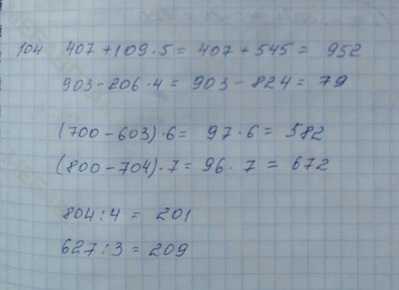 104 407 + 109 · 5 = 407 + 545 = 952
903 - 206 · 4 = 903 - 824 = 79
(700 - 603) · 6 = 97 · 6 = 582
(800 - 704) · 7 = 96 · 7 = 672
804 : 4 = 201
627 : 3 = 209